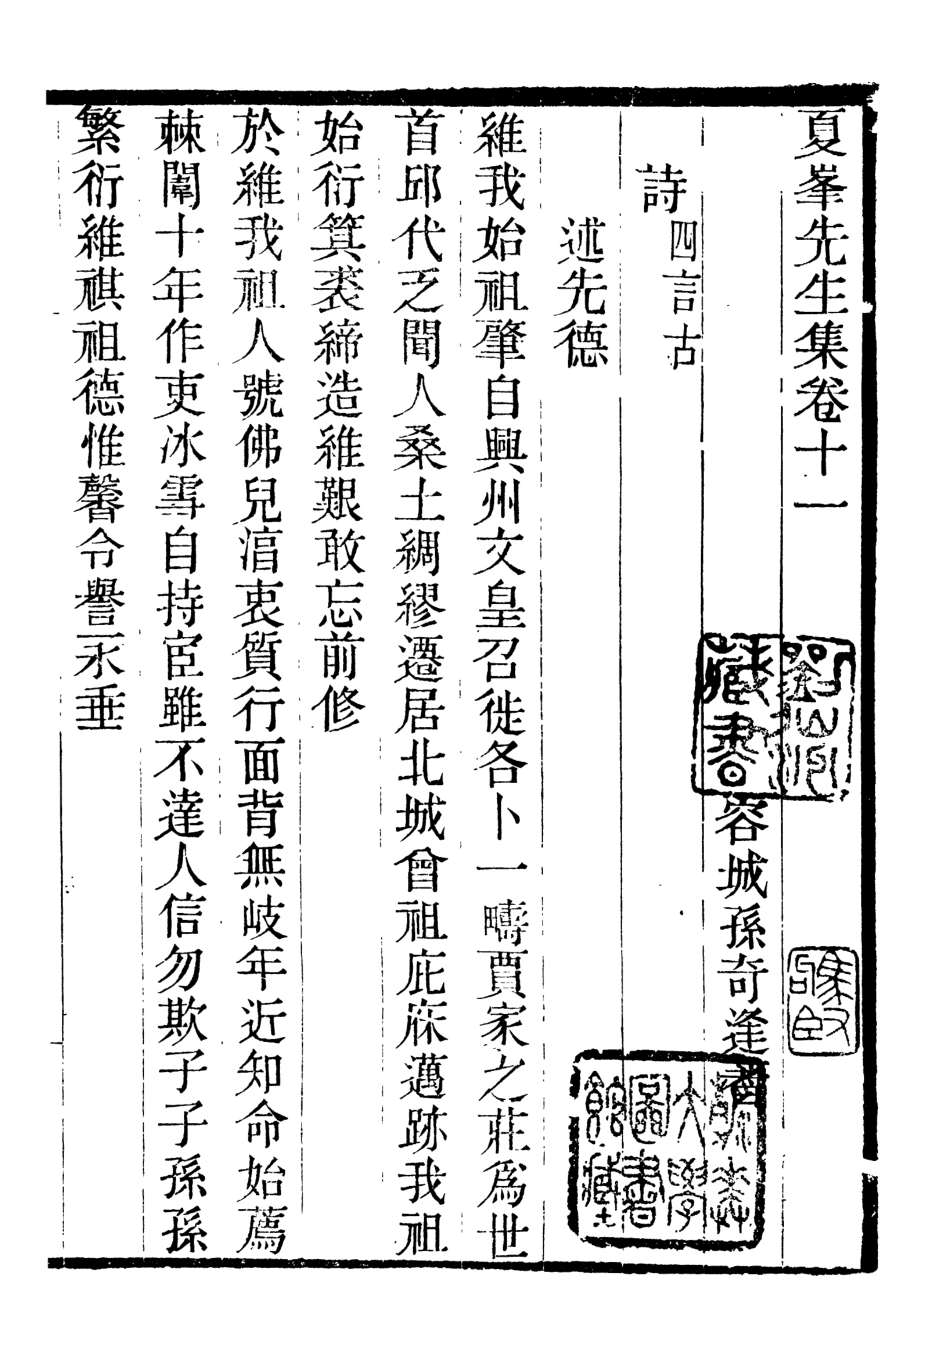 夏峯先生集卷十一
容城孫奇逢著
詩四言古
述先德
維我始祖肇自興州文皇召徙各卜一疇賈家之莊爲世
首邱代乏聞人桑土綢繆遷居北城曾祖庇庥邁跡我祖
始衍箕裘締造維艱敢忘前修
於維我祖人號佛兒淯衷質行面背無歧年近知命始薦
棘闈十年作吏冰雪自持宦雖不達人信勿欺子子孫孫
繁衍維祺祖德惟馨令譽永垂
藏書
大學
圖書
館藏